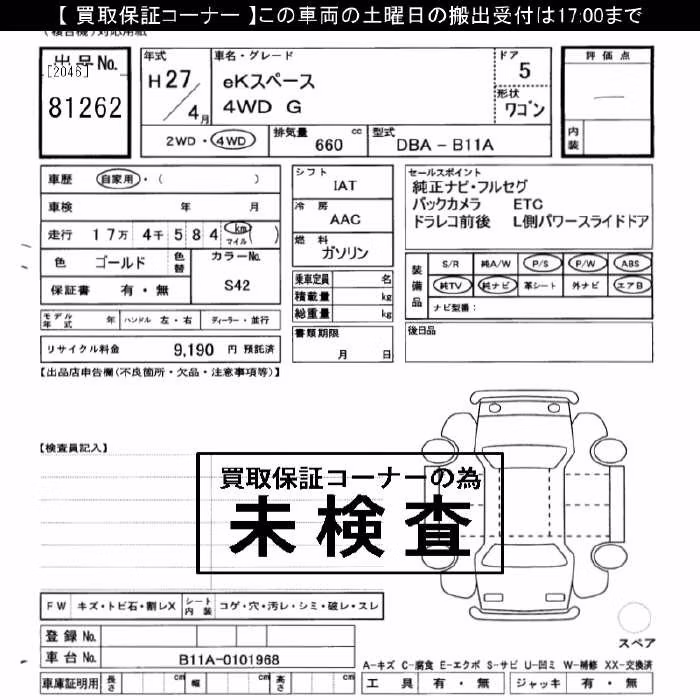 【 買取保証コーナー 】この車両の土曜日の搬出受付は17:00まで
出品No.
[2046]
81262
年式
H27/4月
車名・グレード
eKスペース
4WD G
ドア
5
形状
ワゴン
評価点
内装
2WD・4WD
排気量 660 cc
型式 DBA - B11A
車歴 自家用・( )
車検 年 月
走行 17万 4千 5 8 4 km マイル ( )
色 ゴールド 色替
カラーNo.
S42
保証書 有・無
モデル年式 年 ハンドル 左・右 ディーラー・並行
リサイクル料金 9,190 円 預託済
シフト
IAT
冷房
AAC
燃料
ガソリン
乗車定員 名
積載量 kg
総重量 kg
書類期限
月 日
セールスポイント
純正ナビ・フルセグ
バックカメラ ETC
ドラレコ前後 L側パワースライドドア
装備品
S/R 純A/W P/S P/W ABS
純TV 純ナビ 革シート 外ナビ エアB
ナビ型番：
後日品
【出品店申告欄(不良箇所・欠品・注意事項等)】
【検査員記入】
買取保証コーナーの為
未検査
FW キズ・トビ石・割レX シート内装 コゲ・穴・汚レ・シミ・破レ・スレ
登録No.
車台No. B11A-0101968
車庫証明用 長さ cm 幅 cm 高さ cm
スペア
A-キズ C-腐食 E-エクボ S-サビ U-凹ミ W-補修 XX-交換済
工具 有・無 ジャッキ 有・無